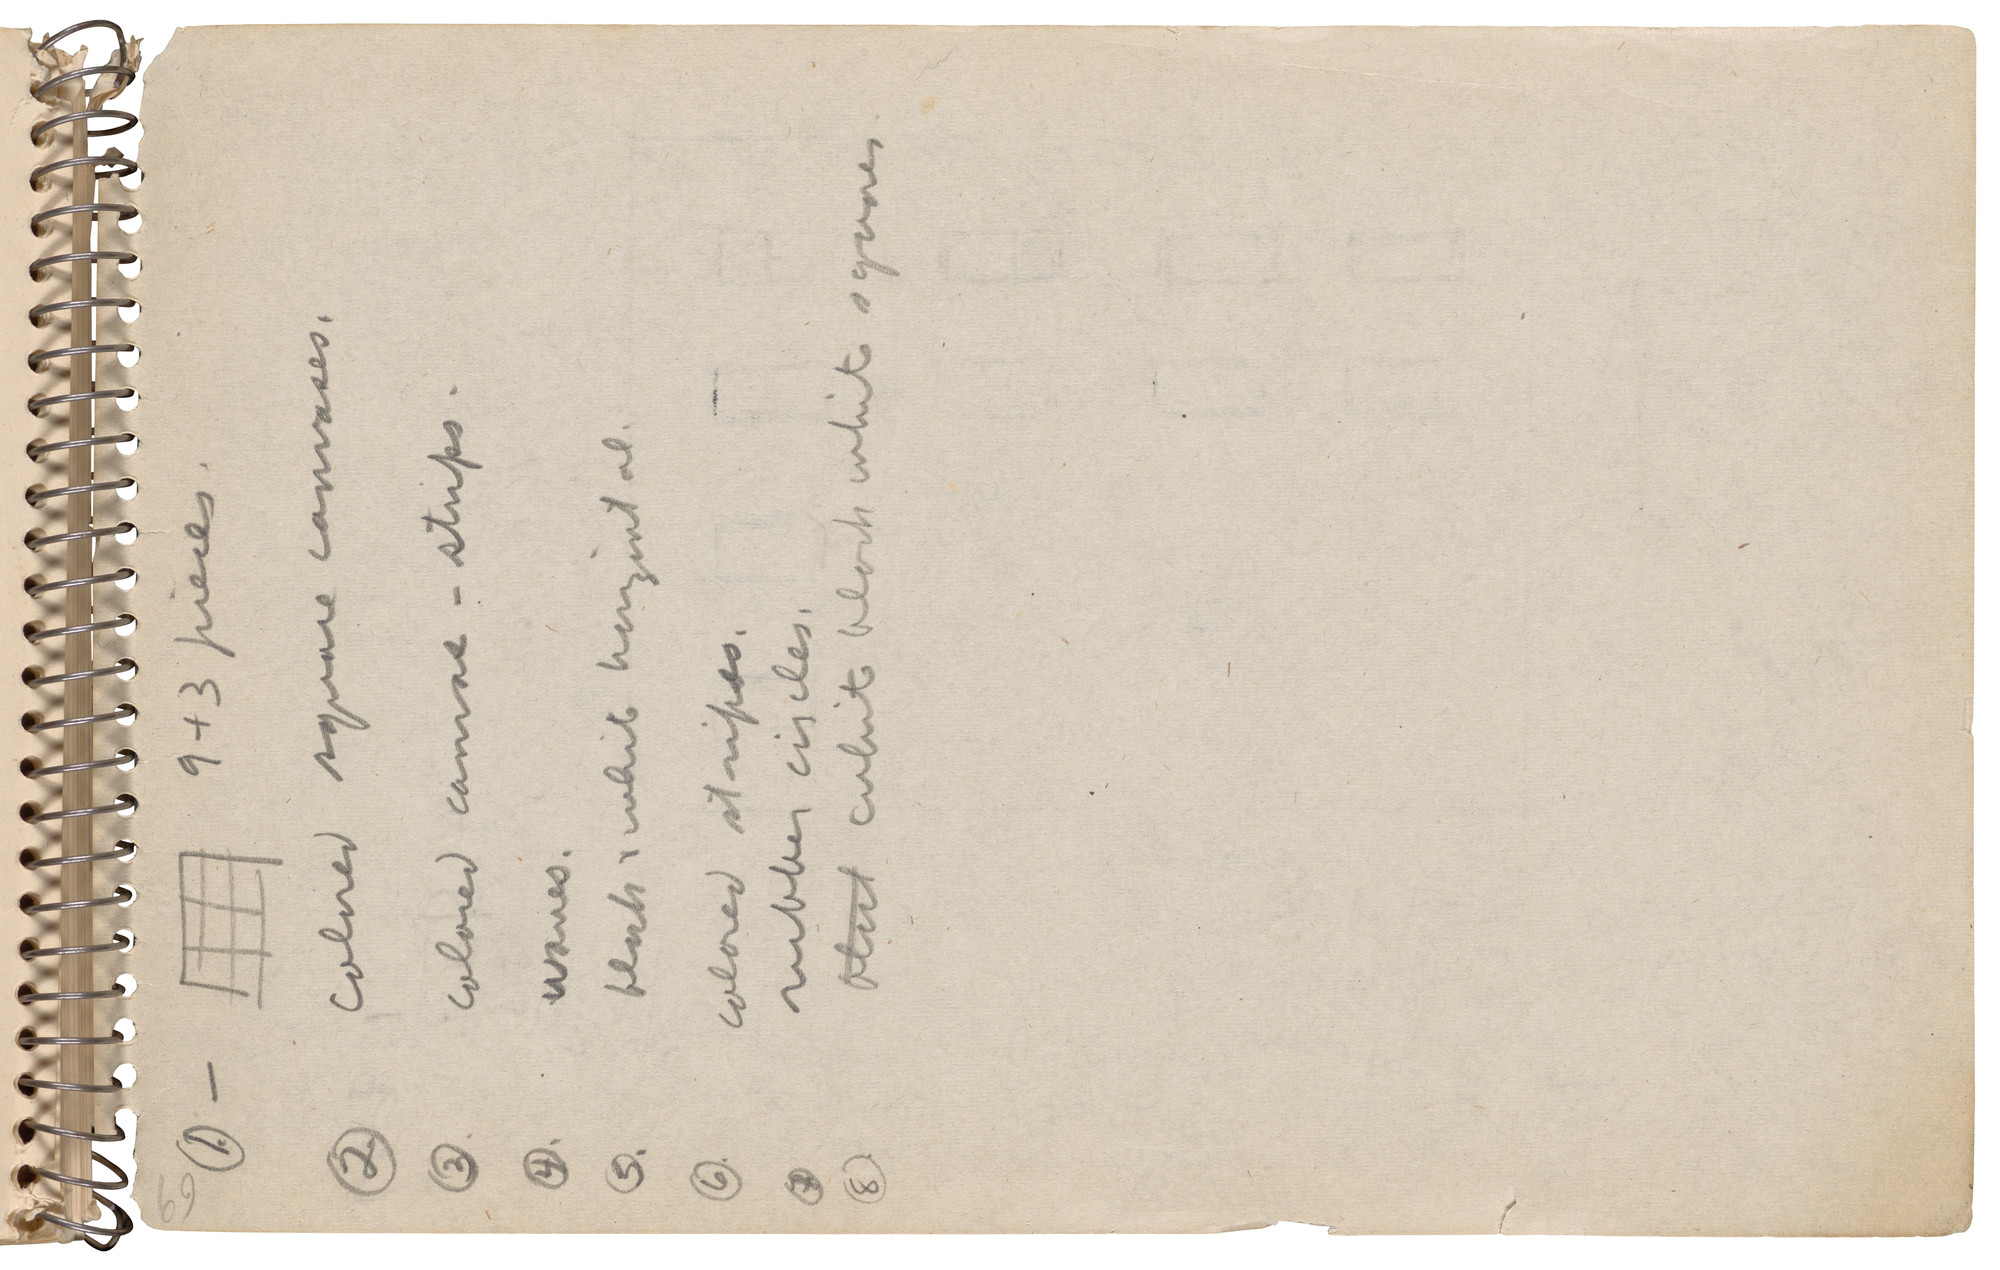 59
①. — 9 + 3 pieces.
② colored square canvases.
③. colored canvas - strips.
④. waves.
⑤. black & white horizontal.
⑥. colored stripes.
⑦. rubber circles.
⑧. white black white squares.